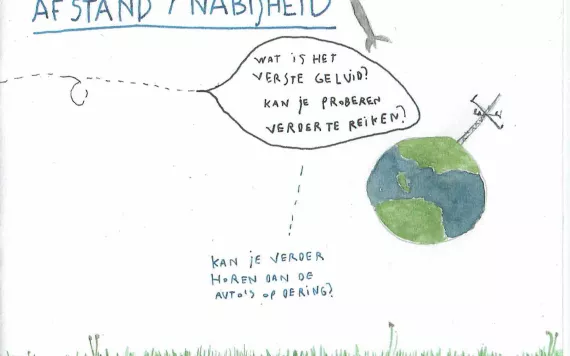 AFSTAND / NABIJHEID
WAT IS HET
VERSTE GELUID?
KAN JE PROBEREN
VERDER TE REIKEN?
KAN JE VERDER
HOREN DAN DE
AUTO'S OP DE RING?